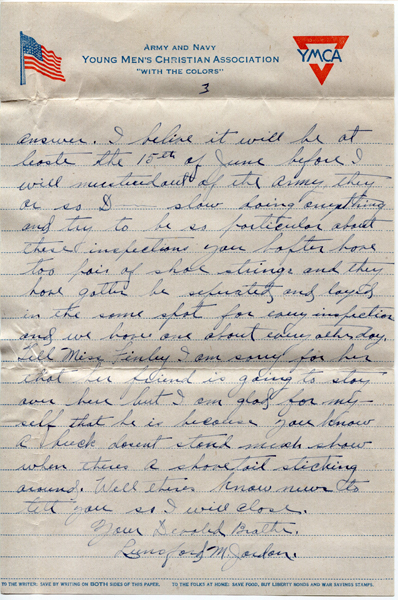 ARMY AND NAVY
YOUNG MEN'S CHRISTIAN ASSOCIATION
"WITH THE COLORS"
YMCA
3
answer. I belive it will be at
leaste the 15th of June before I
will musterdout of the army they
or so D— slow doing anything
and try to be so particular about
there inspections you hafter have
too pair of shoe strings and they
have gotter be seperated and layed
in the same spot for every inspection
and we have one about every other day.
Tell Miss Finley I am sorry for her
that her friend is going to stay
over here but I am glad for my
self that he is because you know
a buck doesnt stand much show
when theres a shave tail sticking
around. Well theirs know news to
tell you so I will close.
Your Devoted Broth.
Lunsford M. Jordan.
TO THE WRITER: SAVE BY WRITING ON BOTH SIDES OF THIS PAPER. TO THE FOLKS AT HOME: SAVE FOOD, BUY LIBERTY BONDS AND WAR SAVINGS STAMPS.